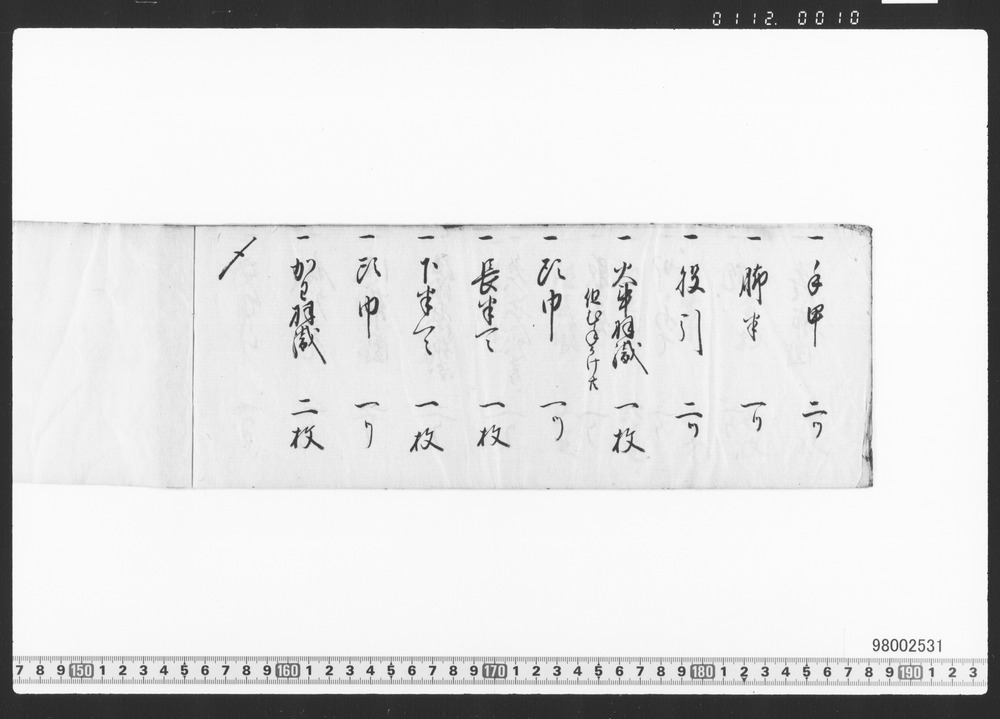 0112.0010
一 手甲 二ツ
一 脚半 一ツ
一 股引 二ツ
一 火事羽織 一枚
但むねかけ共
一 頭巾 一ツ
一 長半天 一枚
一 下半天 一枚
一 頭巾 一ツ
一 かわ羽織 二枚
〆
98002531
7 8 9 150 1 2 3 4 5 6 7 8 9 160 1 2 3 4 5 6 7 8 9 170 1 2 3 4 5 6 7 8 9 180 1 2 3 4 5 6 7 8 9 190 1 2 3